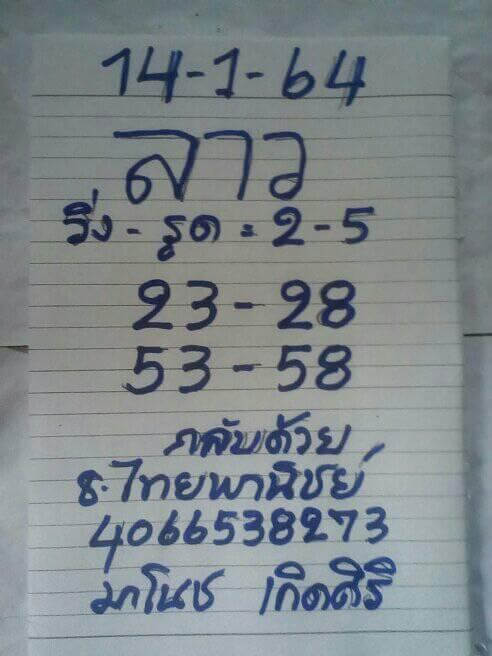 14-1-64
ลาว
วิ่ง - รูด = 2-5
23-28
53-58
กลับด้วย
ธ.ไทยพานิชย์
4066538273
มาโนช เกิดศิริ